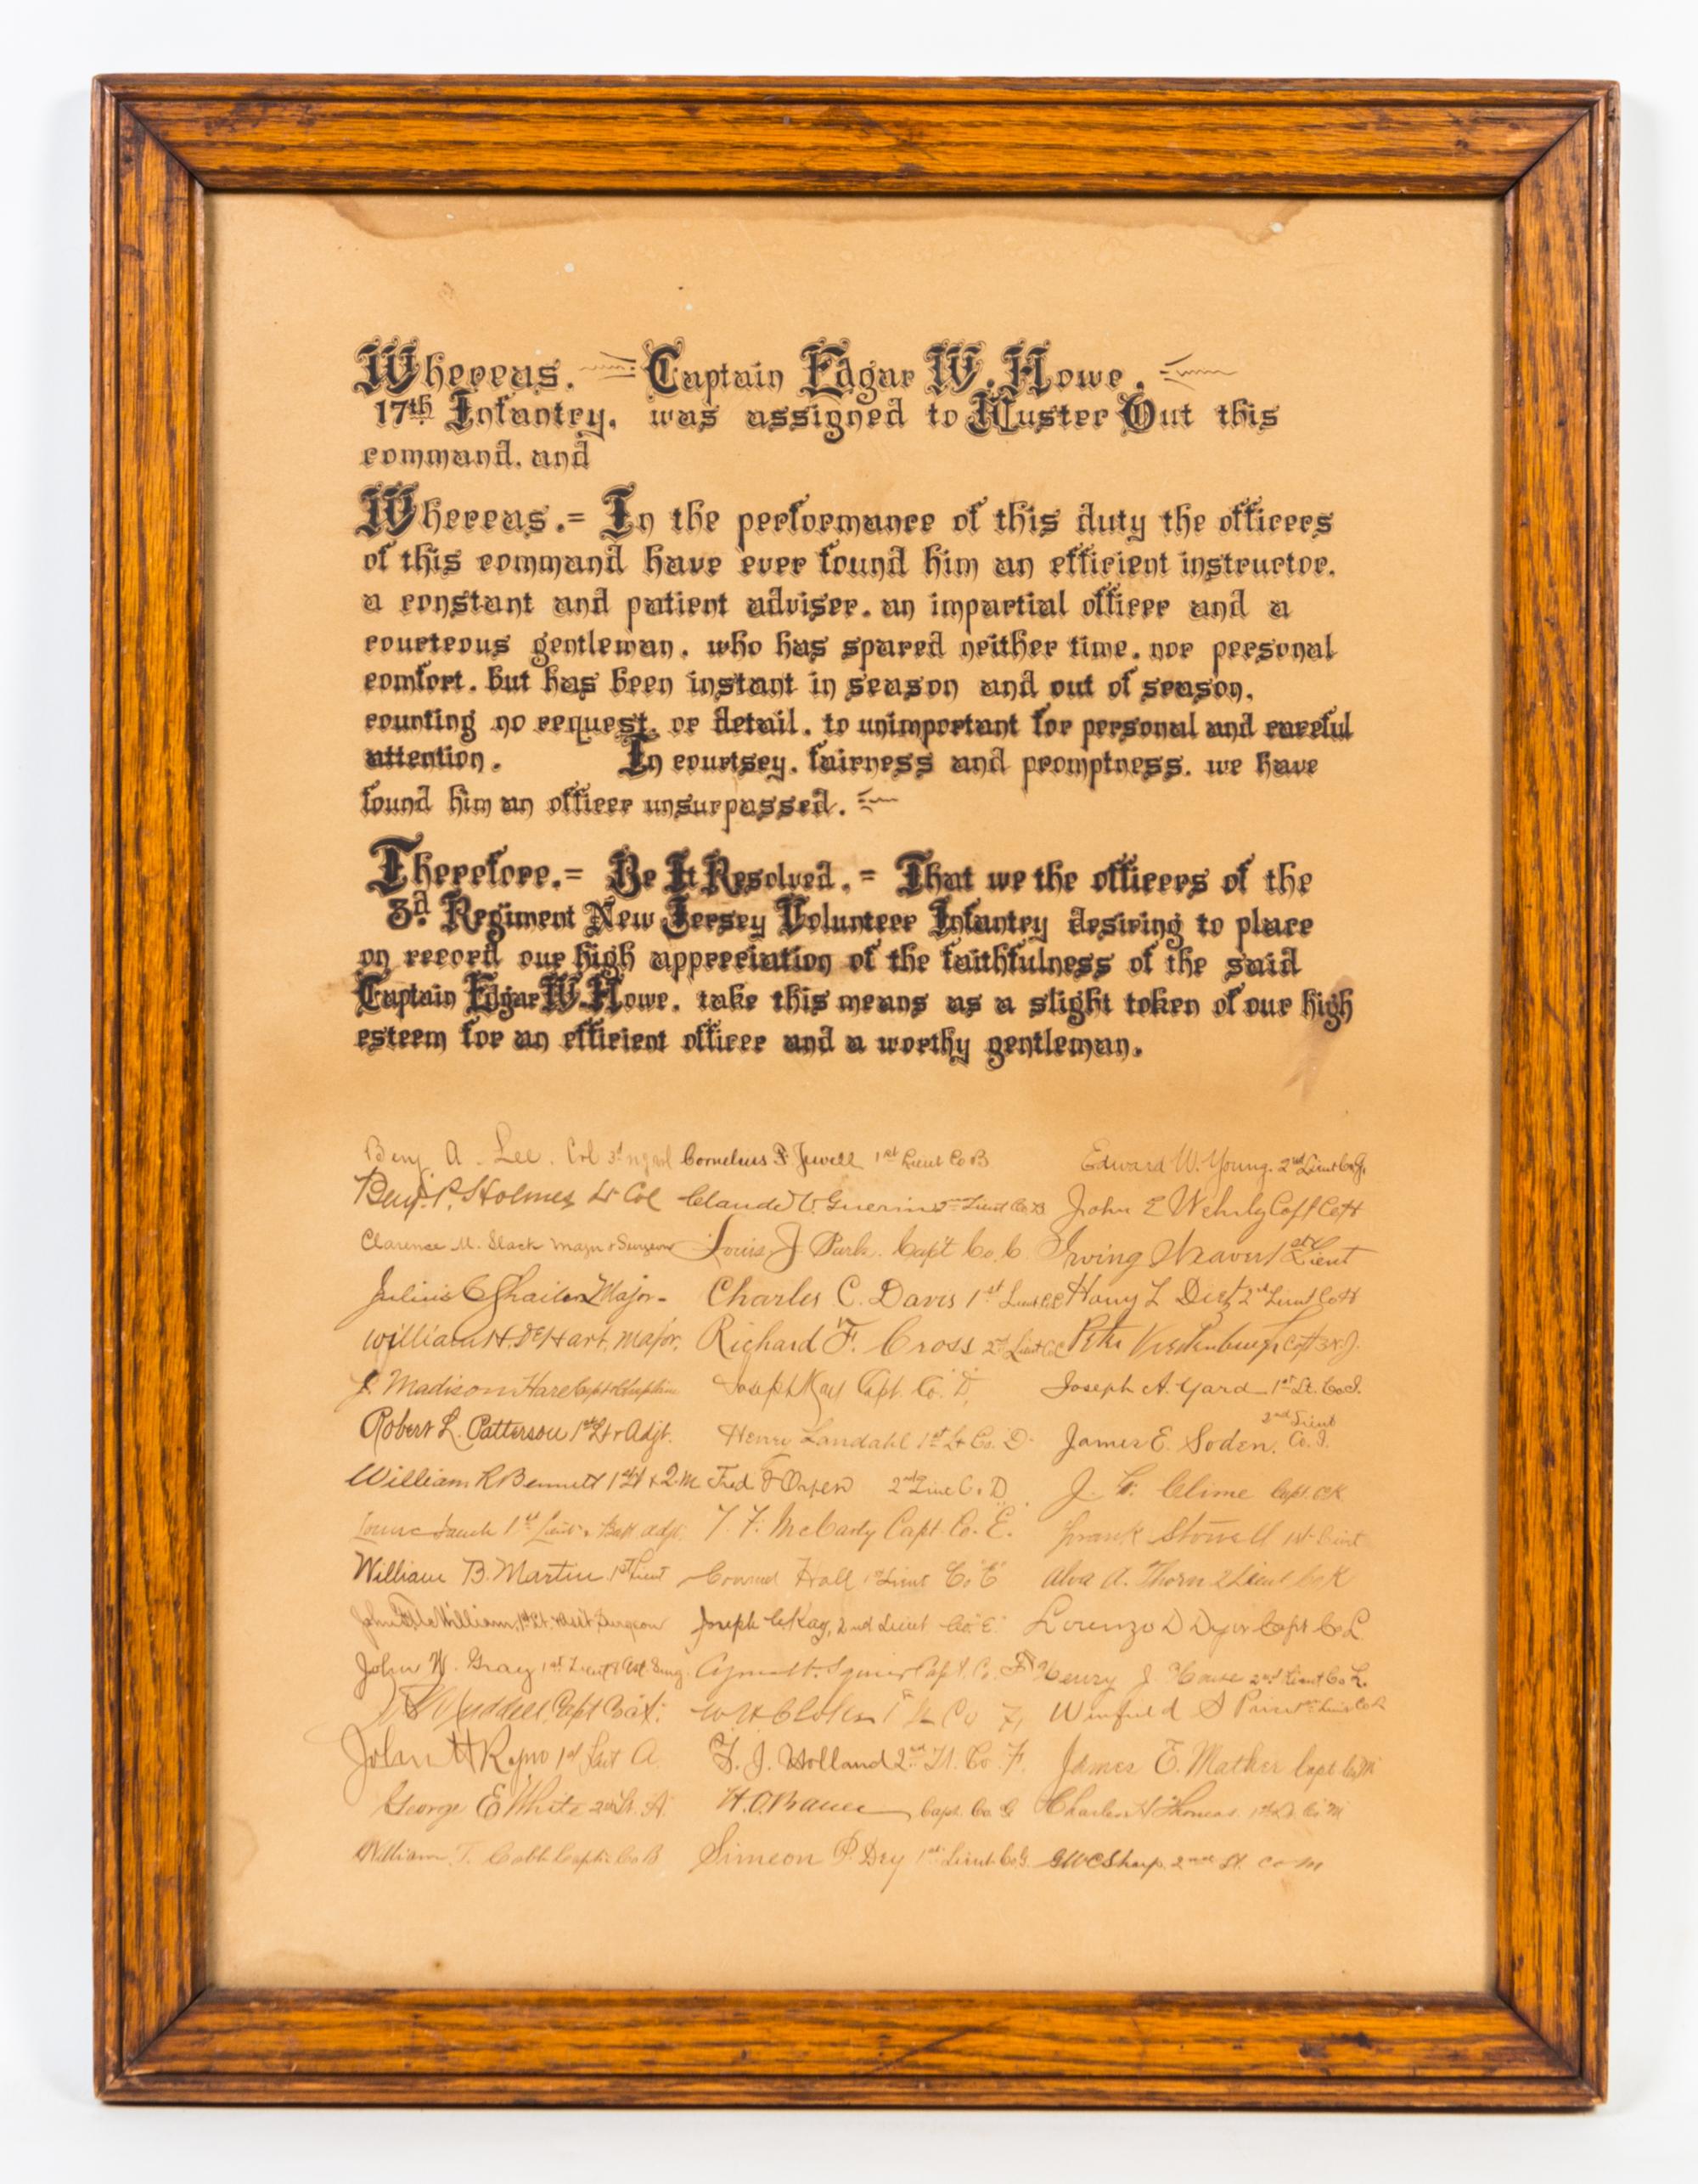 Whereas. Captain Edgar W. Howe.
17th Infantry, was assigned to Muster Out this
command, and
Whereas.= In the performance of this duty the officers
of this command have ever found him an efficient instructor.
a constant and patient adviser. an impartial officer and a
courteous gentleman. who has spared neither time. nor personal
comfort. but has been instant in season and out of season.
counting no request. or detail. to unimportant for personal and careful
attention. In courtsey. fairness and promptness. we have
found him an officer unsurpassed.
Therefore.= Be It Resolved.= That we the officers of the
3d. Regiment New Jersey Volunteer Infantry desiring to place
on record our high appreciation of the faithfulness of the said
Captain Edgar W. Howe. take this means as a slight token of our high
esteem for an efficient officer and a worthy gentleman.
Benj. A. Lee. Col 3d
Benj. P. Holmes Lt Col
Clarence M. Slack Major & Surgeon
Julius C Shailer Major-
William H. DeHart, Major,
J. Madison Hare Capt & Chaplain
Robert L. Patterson 1st Lt & Adjt.
William R Bennett 1st Lt & Q.M
1st Lieut & Batt adjt.
William B. Martin 1st Lieut
1st Lt. Asst Surgeon
John W. Gray 1st Lieut & Asst Surg.
Capt Co A.
John H 1st Lieut A.
George E White 2nd Lt. A.
William T. Cobb Capt. Co B
Cornelius F. Jewell 1st Lieut Co B
Claude V. Guerin 2nd Lieut Co. B
Louis J Park. Capt Co. C
Charles C. Davis 1st Lieut Co C
Richard F. Cross 2d Lieut Co C
Joseph Capt. Co. D.
Henry Landahl 1st Lt Co. D.
Fred 2nd Lieu Co. D
T. F. McCarty Capt. Co. E.
Conrad 1st Lieut Co. E
Joseph McKay, 2nd Lieut Co. E.
Squier Capt. Co. F
1st Lt Co F,
F. J. Holland 2nd Lt. Co. F.
H.O. Bauer Capt. Co. G
Simeon P. Dey 1st Lieut Co G.
Edward W. Young. 2nd Lieut Co G.
John E Wehrly Capt Co H
Irving Weaver 1st Lieut
Harry L Dietz 2nd Lieut Co H
Peter Vredenburgh Capt
Joseph A. Yard 1st Lt. Co I.
James E. Soden. 2nd Lieut Co. I.
J. Clime Capt. Co K
Frank Stowell 1st Lieut
Alva A. Thorn 2 Lieut Co K
Lorenzo D Dyer Capt Co L
Henry J. House 2nd Lieut Co L.
Winfield S Price
James E. Mather Capt Co M
Charles H Thomas. 1st Lt. Co M
G W C Sharp. 2nd Lt. Co M